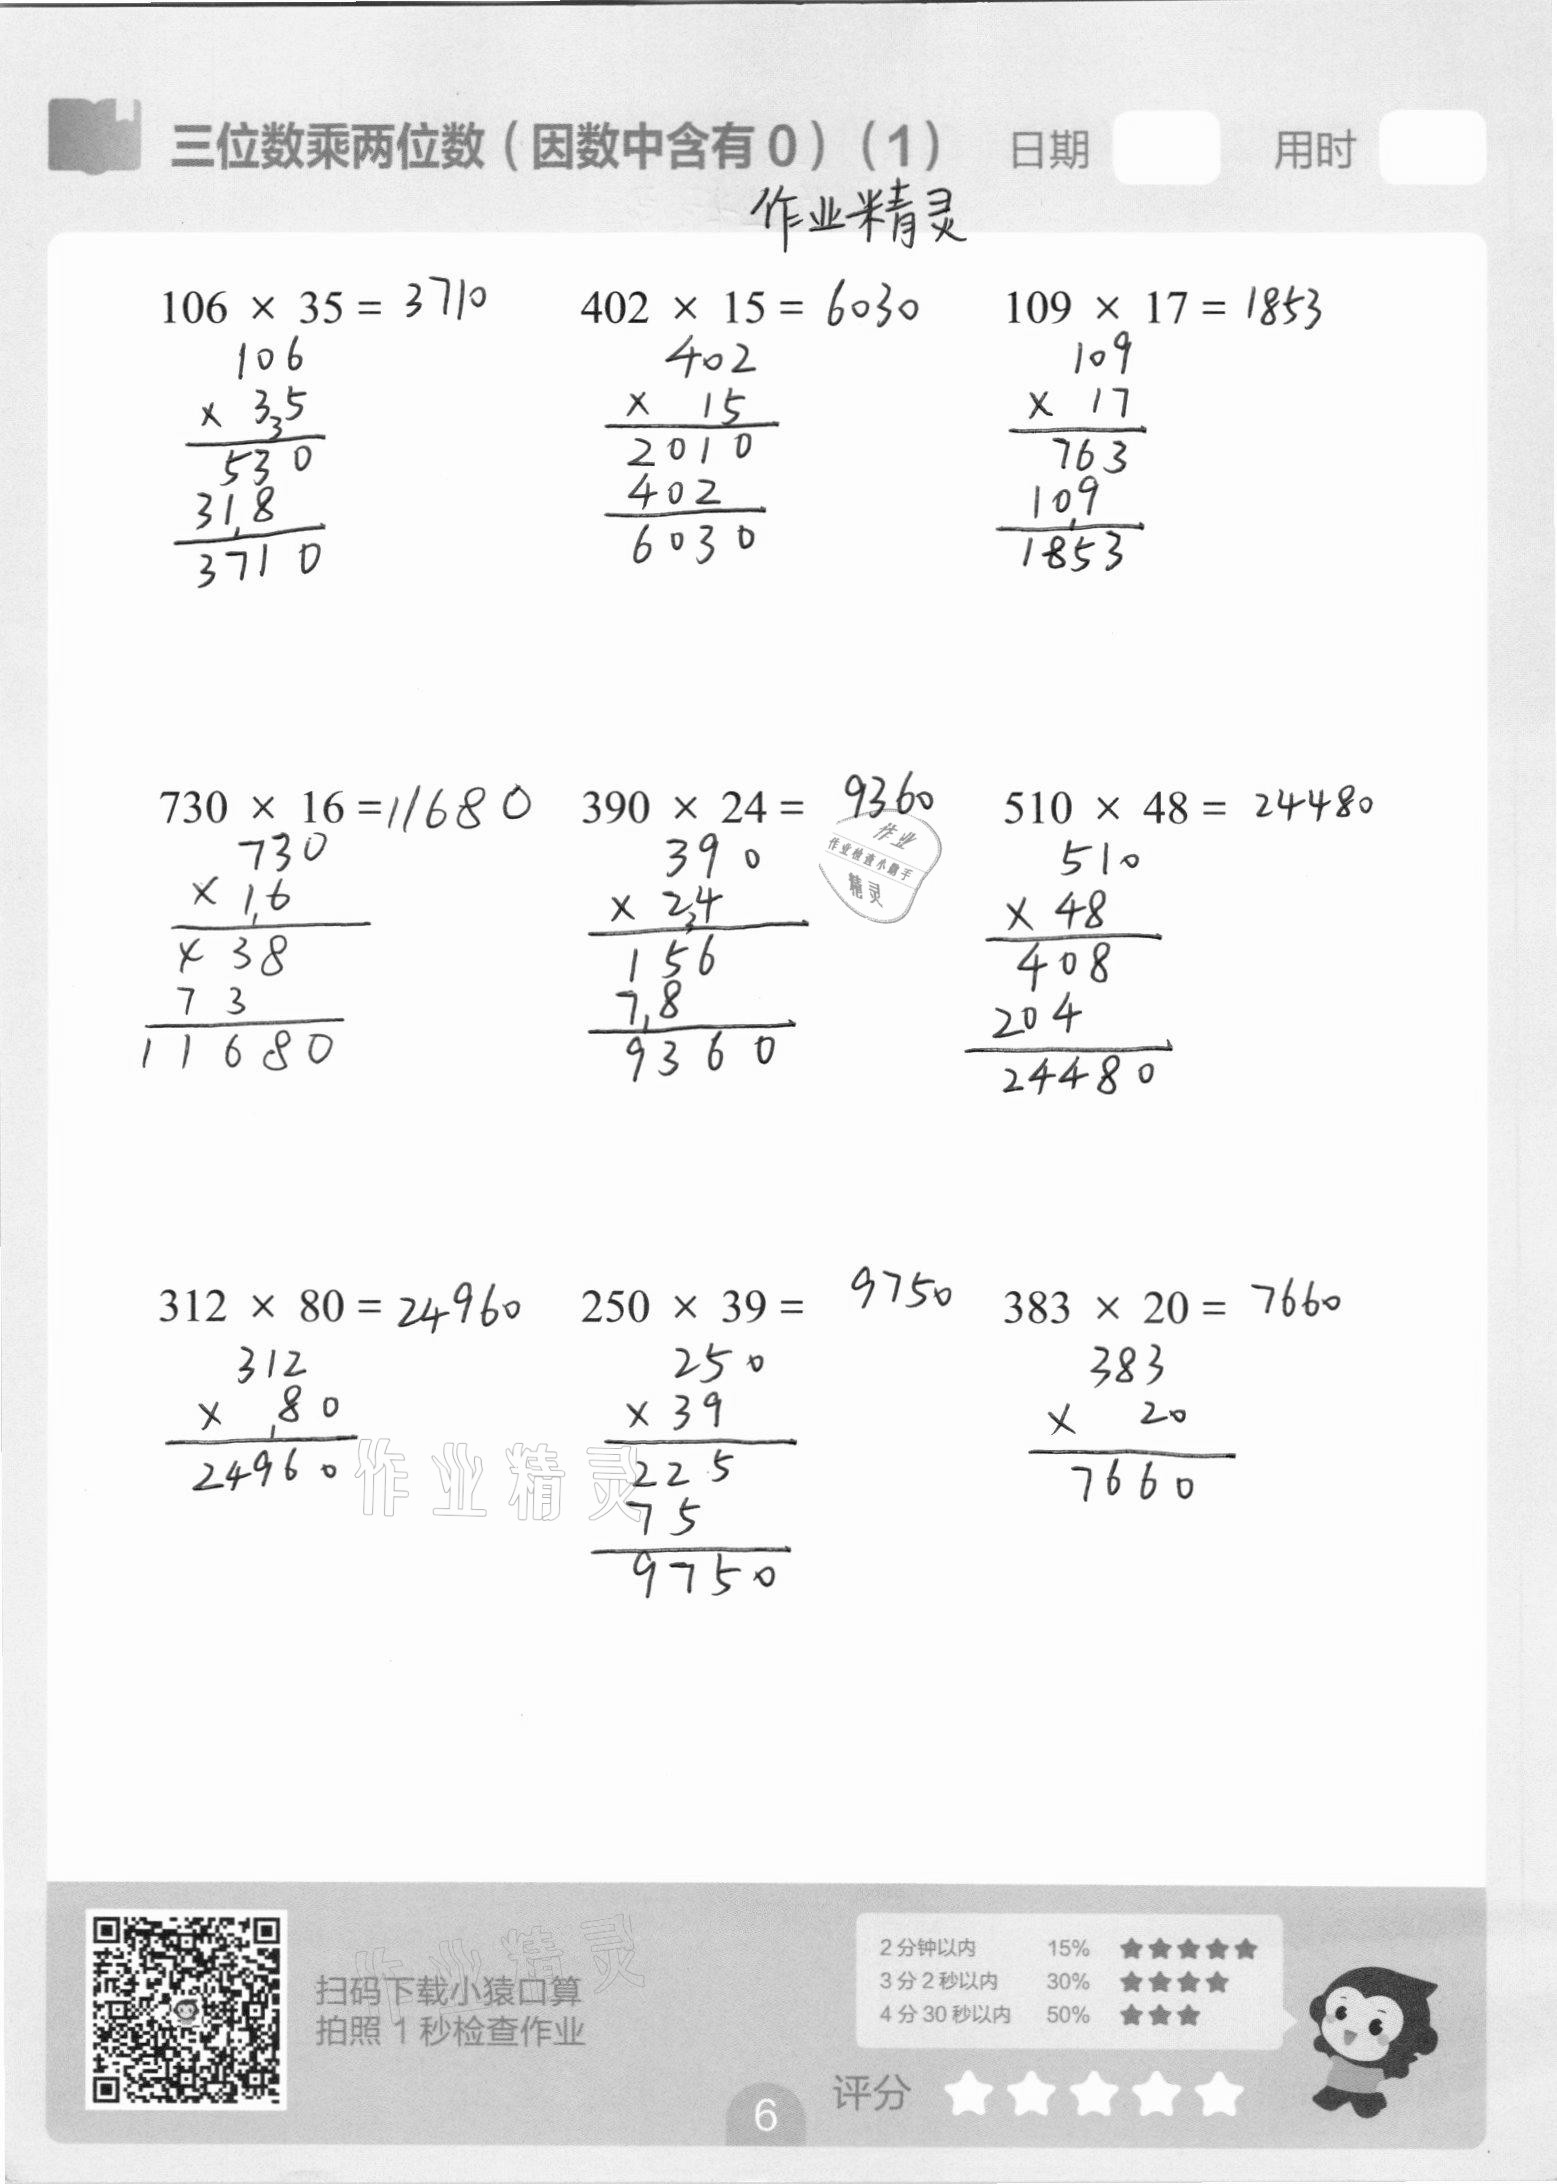 三位数乘两位数（因数中含有0）（1） 日期 用时
作业精灵
106 × 35 = 3710
402 × 15 = 6030
109 × 17 = 1853
106
× 35
3
530
318
3710
402
× 15
2010
402
6030
109
× 17
763
109
1853
730 × 16 = 11680
390 × 24 = 9360
510 × 48 = 24480
730
× 16
438
73
11680
390
× 24
3
156
78
9360
作业
作业检查小助手
精灵
510
× 48
408
204
24480
312 × 80 = 24960
250 × 39 = 9750
383 × 20 = 7660
312
× 80
24960
250
× 39
225
75
9750
383
× 20
7660
作业精灵
作业精灵
扫码下载小猿口算
拍照1秒检查作业
2分钟以内 15% ★★★★★
3分2秒以内 30% ★★★★
4分30秒以内 50% ★★★
评分
6